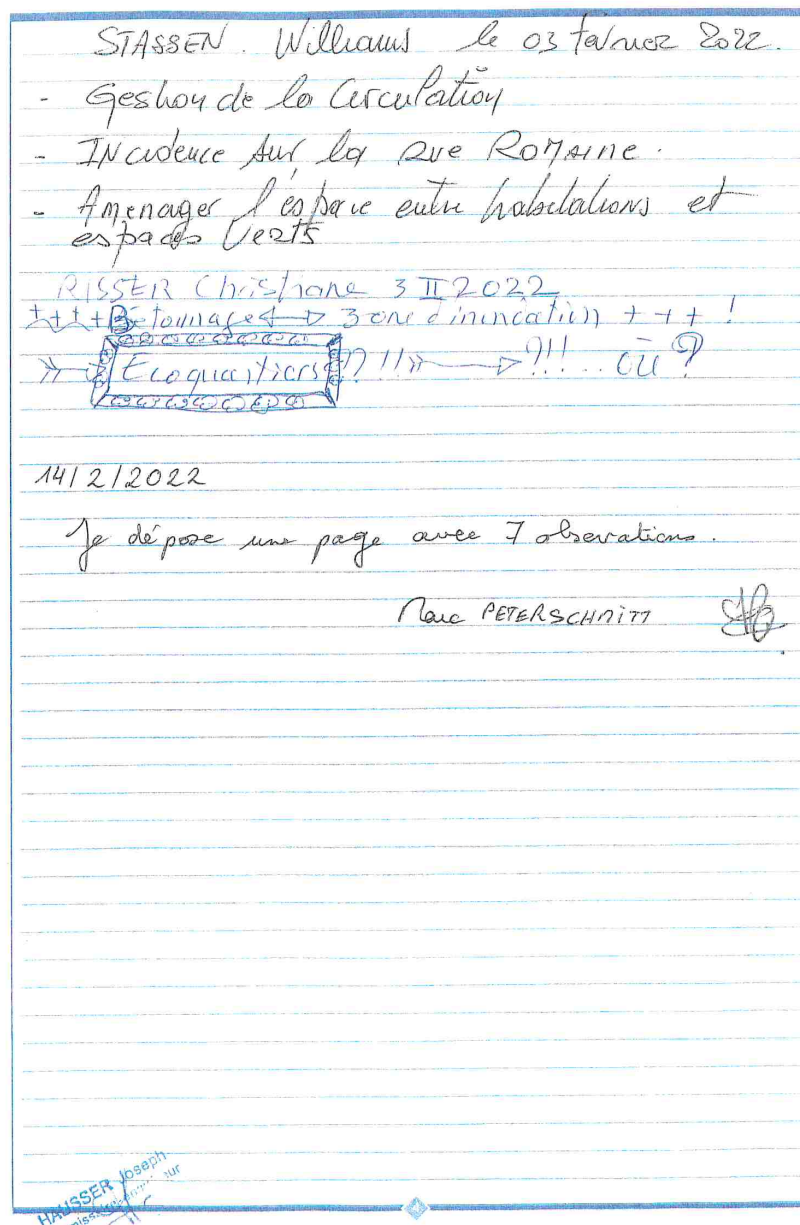 STASSEN. Williams le 03 février 2022.
- Gestion de la Circulation
- INcidence sur la Rue ROMAINE.
- Aménager l'espace entre habitations et
espaces Verts
RISSER Christiane 3 II 2022
++++ Bétonnage ↔ Zone d'inondation + + + !
Ecoquartiers ?? !! ?!!... où ?
14/2/2022
Je dépose une page avec 7 observations.
Marc PETERSCHMITT
HAUSSER Joseph